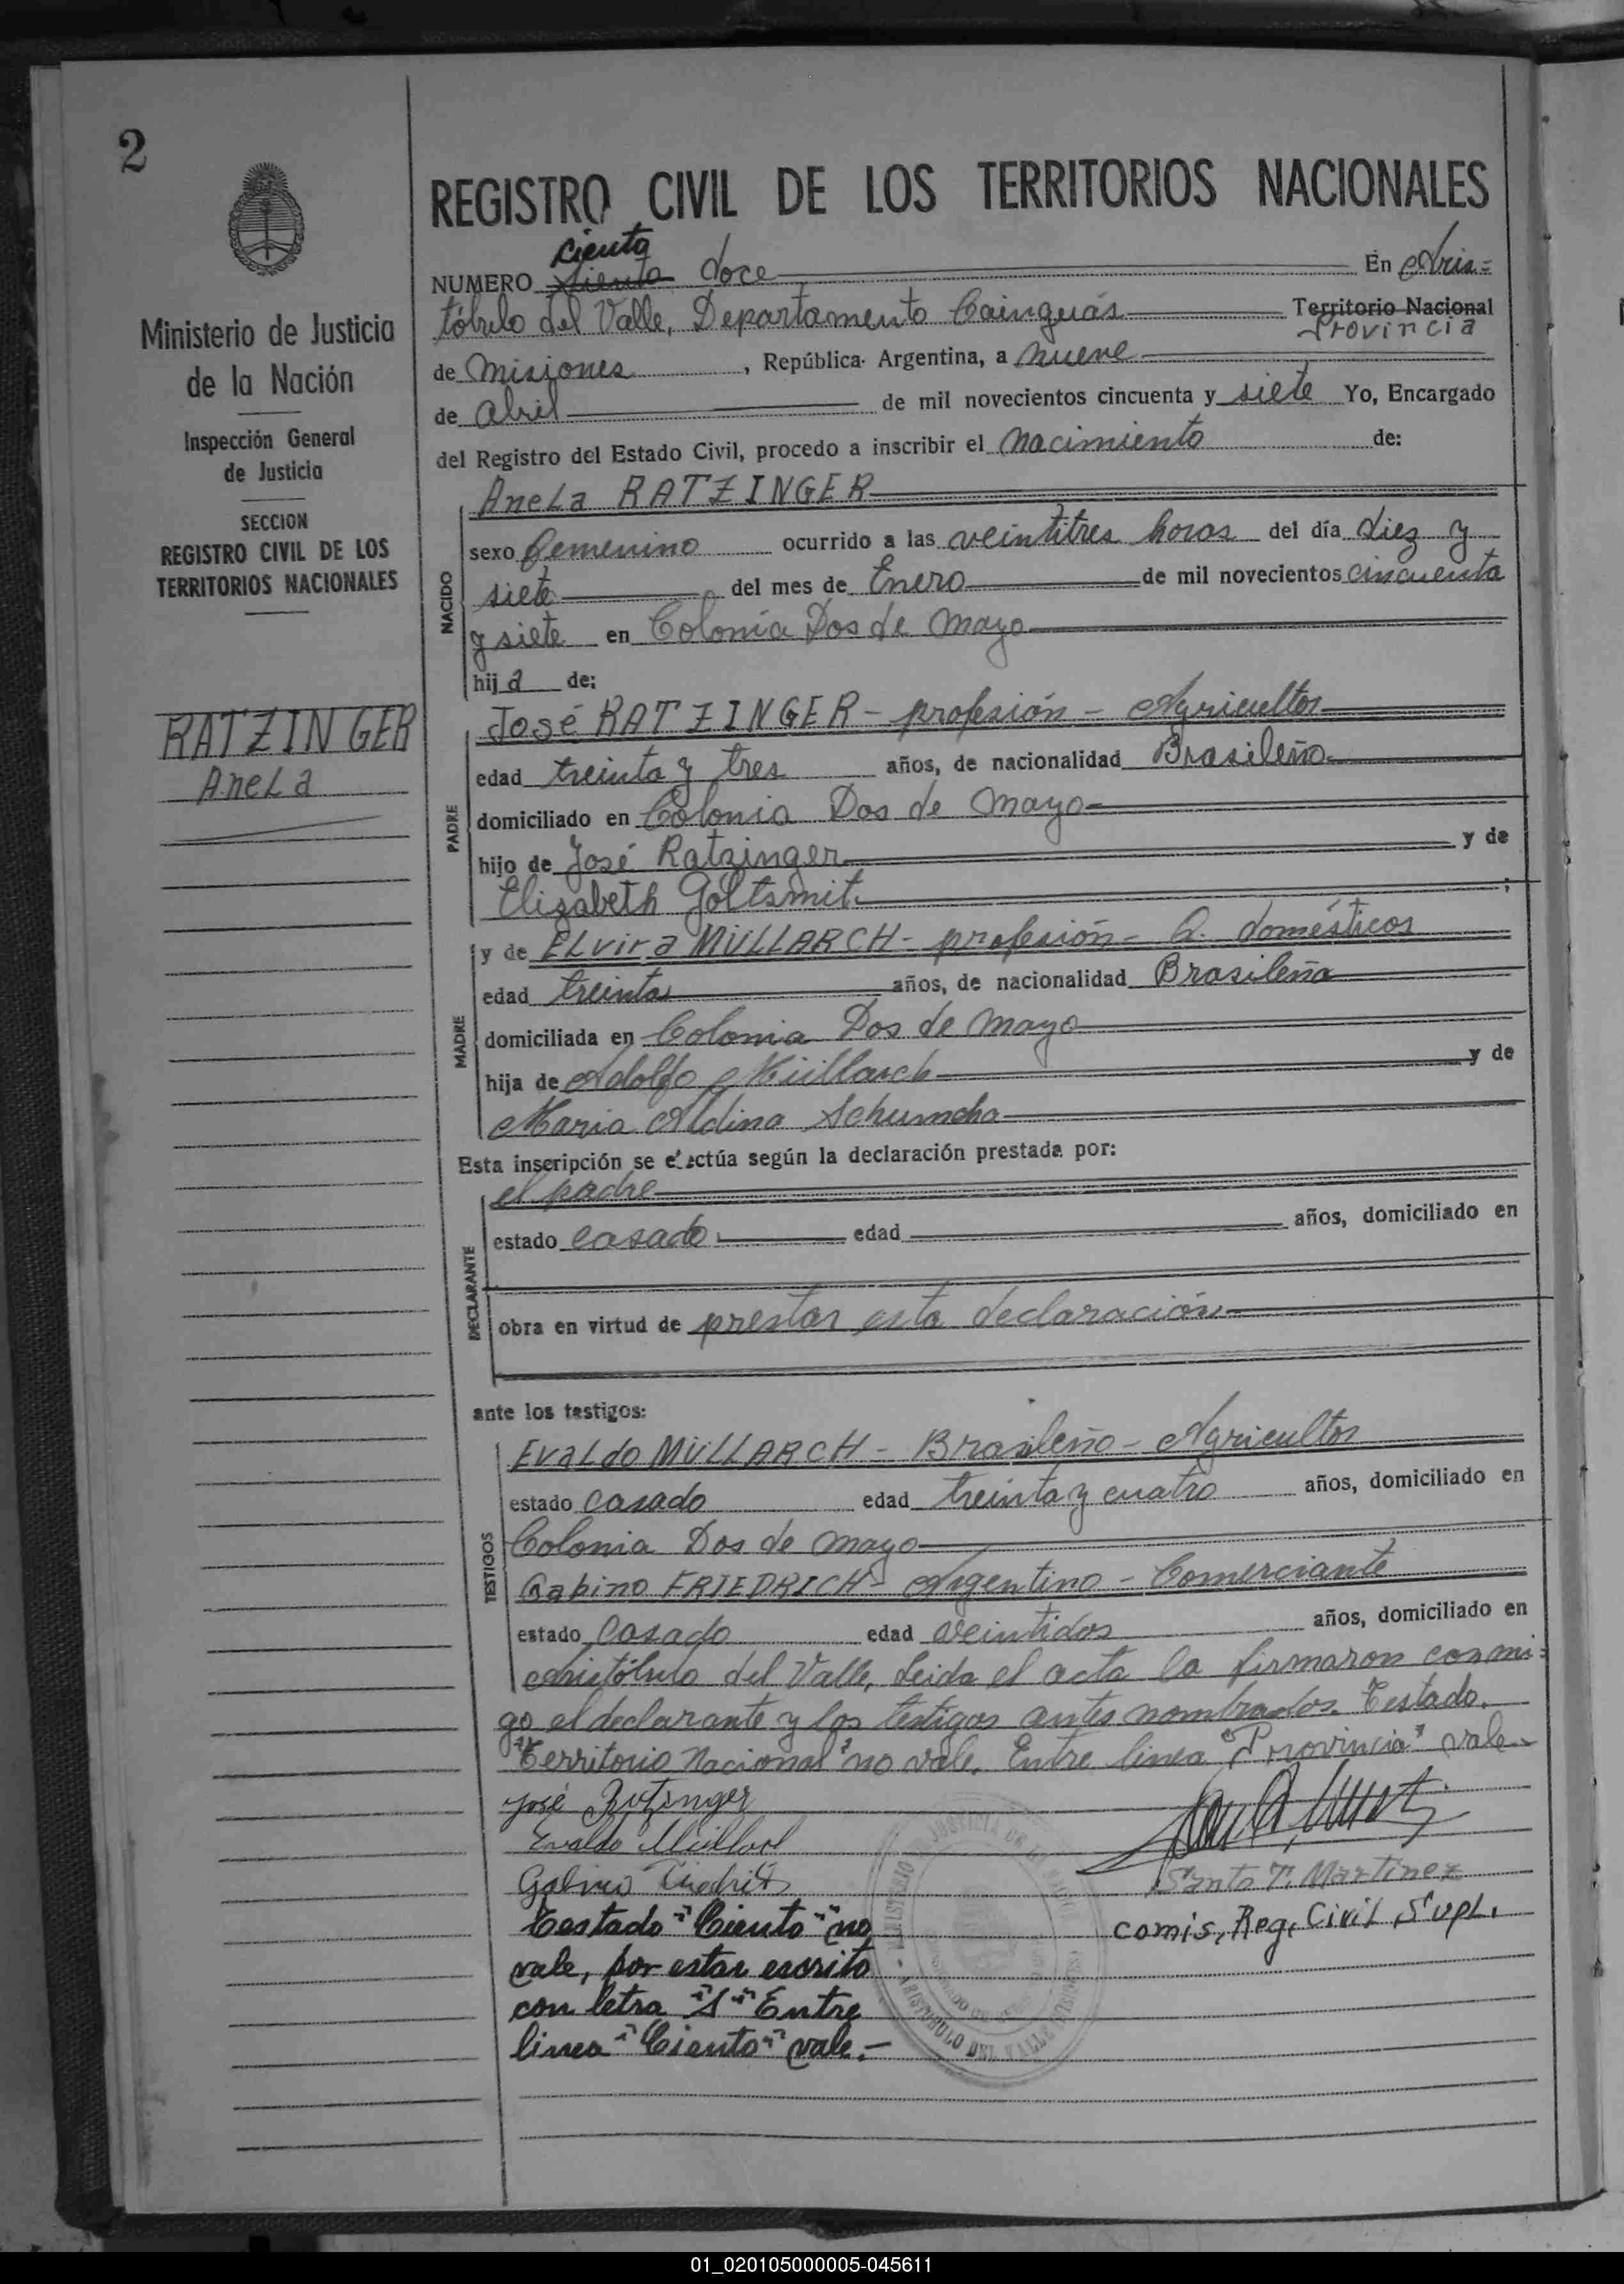 2
REGISTRO CIVIL DE LOS TERRITORIOS NACIONALES
Ciento
NUMERO Siento doce En Aris=
tóbulo del Valle, Departamento Cainguás Territorio Nacional
Provincia
de Misiones, República Argentina, a nueve
de abril de mil novecientos cincuenta y siete Yo, Encargado
del Registro del Estado Civil, procedo a inscribir el nacimiento de:
Ministerio de Justicia
de la Nación
Inspección General
de Justicia
SECCION
REGISTRO CIVIL DE LOS
TERRITORIOS NACIONALES
RATZINGER
Anela
NACIDO
Anela RATZINGER
sexo femenino ocurrido a las veintitres horas del día diez y
siete del mes de Enero de mil novecientos cincuenta
y siete en Colonia Dos de Mayo
hija de:
PADRE
José RATZINGER - profesión - Agricultor
edad treinta y tres años, de nacionalidad Brasileño
domiciliado en Colonia Dos de Mayo
hijo de José Ratzinger y de
Elizabeth Goltsmit ;
MADRE
y de Elvira MÜLLARCH - profesión - Q. domésticos
edad treinta años, de nacionalidad Brasileña
domiciliada en Colonia Dos de Mayo
hija de Adolfo Müllarch y de
Maria Aldina Schumcha
Esta inscripción se efectúa según la declaración prestada por:
DECLARANTE
el padre
estado casado edad años, domiciliado en
obra en virtud de prestar esta declaración
ante los testigos:
TESTIGOS
Evaldo MÜLLARCH - Brasileño - Agricultor
estado casado edad treinta y cuatro años, domiciliado en
Colonia Dos de Mayo
Gabino FRIEDRICH - Argentino - Comerciante
estado casado edad veintidos años, domiciliado en
Aristóbulo del Valle, Leida el acta la firmaron conmi=
go el declarante y los testigos antes nombrados. Testado.
"Territorio Nacional" no vale. Entre linea "Provincia" vale
José Ratzinger
Evaldo Müllarch
Gabino Friedrich
Santo T. Martinez
comis. Reg. Civil Supl.
Testado "Ciento" no
vale, por estar escrito
con letra "S" Entre
linea "Ciento" vale.-
MINISTERIO DE JUSTICIA DE LA NACION
ARISTOBULO DEL VALLE (MISIONES)
01_020105000005-045611